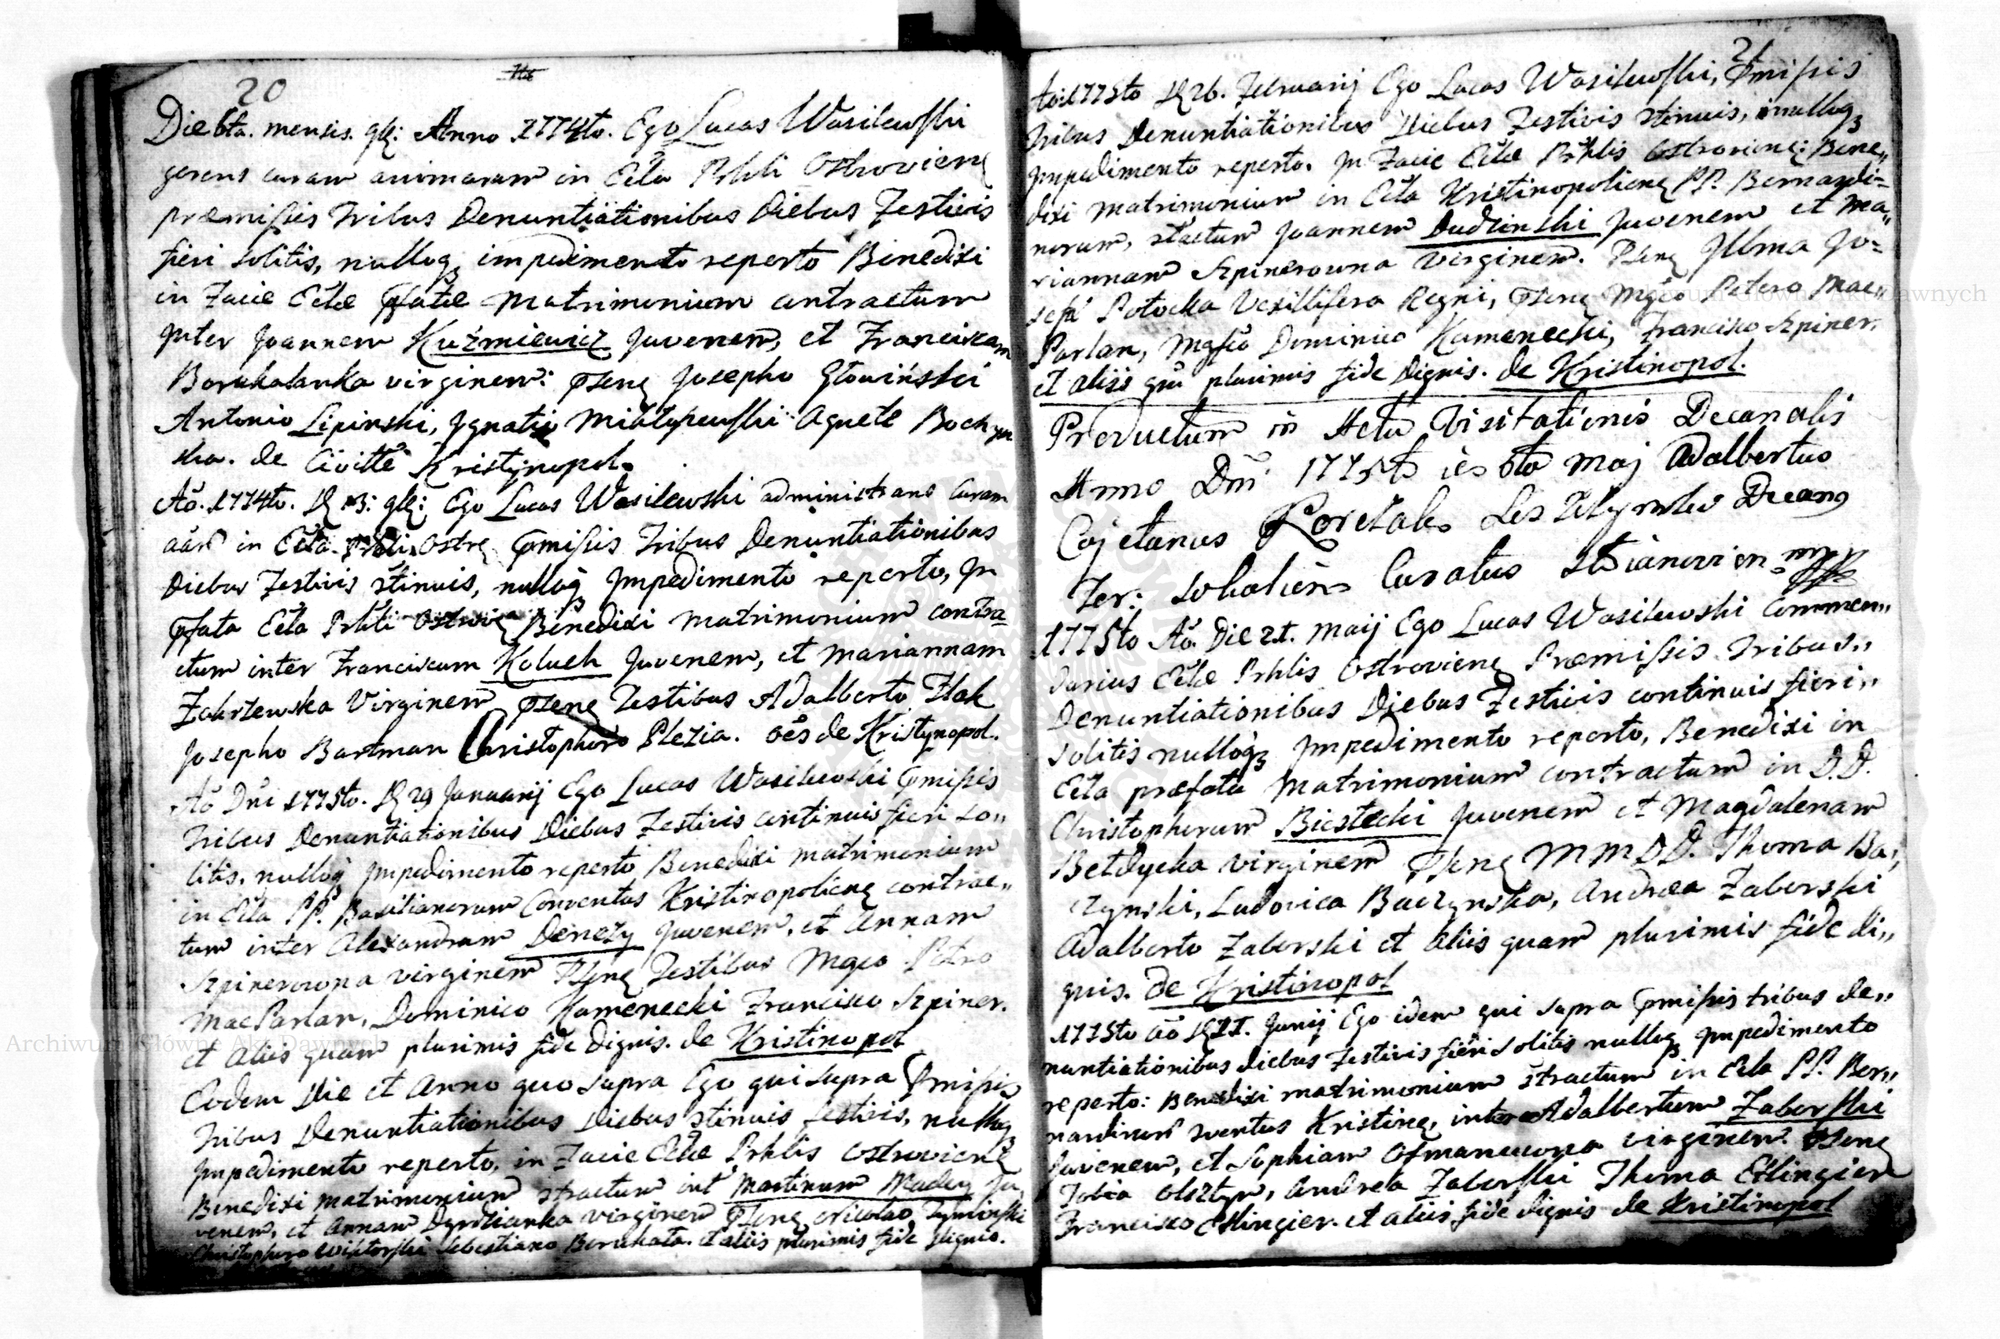 20
Die 6ta. mensis. 9br: Anno 1774to. Ego Lucas Wasilewski
gerens curam animarum in Ecła Prhli Ostrovienę
præmissis Tribus Denuntiationibus Diebus Festivis
fieri solitis, nulloqꝫ impedimento reperto Benedixi
in Facie Ecłæ pfatæ Matrimonium contractum
Inter Joannem Kuźmiewicz Juvenem, et Franciscam
Borukalanka virginem: psenę Josepho Głowiński
Antonio Lipinski, Ignatio Agnete Bochyn
ska. de Civitte Kristynopol.
Aō. 1774to. D 13: 9br: Ego Lucas Wasilewski administrans Curam
aār in Ecła Prhli Ostrę pmissis Tribus Denuntiationibus
Diebus Festivis stinuis, nulloqꝫ Impedimento reperto, In
pfata Ecła Prhli Ostrovienę Benedixi matrimonium contra-
ctum inter Franciscum Koluch Juvenem, et Mariannam
Zakrzewska Virginem psenę Testibus Adalberto Flak
Josepho Bartman Christophoro Plezia. oēs de Kristynopol.
Aō Dni 1775to. D 29 Januarij Ego Lucas Wasilewski pmissis
Tribus Denuntiationibus Diebus Festivis continuis fieri so„
litis, nulloqꝫ Impedimento reperto Benedixi matrimonium
in Ecła PP. Basilianorum Conventus Kristinopolienę contrac„
tum inter Alexandrum Denezy Juvenem, et Annam
Szpinerowna virginem psenę Testibus Mgco Petro
MacParlan, Dominico Kamenecki Francisco Szpiner.
et aliis quam plurimis fide dignis. de Kristinopol
Eodem Die et Anno quo supra Ego qui supra pmissis
Tribus Denuntiationibus Diebus stinuis festivis, nulloqꝫ
Impedimento reperto, in Facie Ecłæ Prhlis Ostrovienę
Benedixi matrimonium stractum int Martinum Madey Ju
venem, et Annam virginem psenę Nicolao Tyminski
Christophoro Wiktorski Sebestiano Borukała. et aliis plurimis fide dignis.
21
Aō 1775to D 26. Februarij Ego Lucas Wasilewski, pmissis
Tribus Denuntiationibus Diebus Festivis stinuis, nulloqꝫ
Impedimento reperto. In Facie Ecłæ Prhlis Ostrovienę: Bene„
dixi matrimonium in Ecła Kristinopolienę PP. Bernardi=
norum, stractum Joannem Dudzinski Juvenem et Ma„
riannam Szpinerowna Virginem. Psenę Illma Jo=
sepha Potocka Vexillifera Regni, psenę Mgco Petero Mac„
Parlan, Mgfco Dominico Kamenecki, Francisco Szpiner,
et aliis quā plurimis fide dignis. de Kristinopol.
Productum in Actu Visitationis Decanalis
Anno Dni 1775to ies 6to Maj Adalbertus
Cajetanus Decanꝯ
Ter: Sokalien Curatus mpp
1775to Aō Die 21. Maij Ego Lucas Wasilewski Commen„
darius Ecłæ Prhlis Ostrovienę Præmissis Tribus„
Denuntiationibus Diebus Festivis continuis fieri„
solitis nulloqꝫ Impedimento reperto, Benedixi in
Ecła præfata Matrimonium contractum in D.D.
Christophorum Biestecki Juvenem et Magdalenam
Betdycka virginem psenę MMDD. Thoma Ba„
czynski, Ludovica Baczynska, Andrea Zaborski
Adalberto Zaborski et aliis quam plurimis fide di„
gnis. de Kristinopol
1775to aō D 11. Junij Ego idem qui supra pmissis tribus de„
nuntiationibus Diebus Festivis fieri solitis nulloqꝫ Impedimento
reperto: Benedixi matrimonium stractum in Ecła PP. Ber„
nardinor sventus Kristinę, inter Adalbertum Zaborski
Juvenem, et Sophiam Ofmanowna virginem psenę
Tobia Olsztyn, Andrea Zaborski Thoma Etlingier
Francisco Etlingier. et aliis fide dignis de Kristinopol
Archiwum Główne Akt Dawnych
Archiwum Główne Akt Dawnych